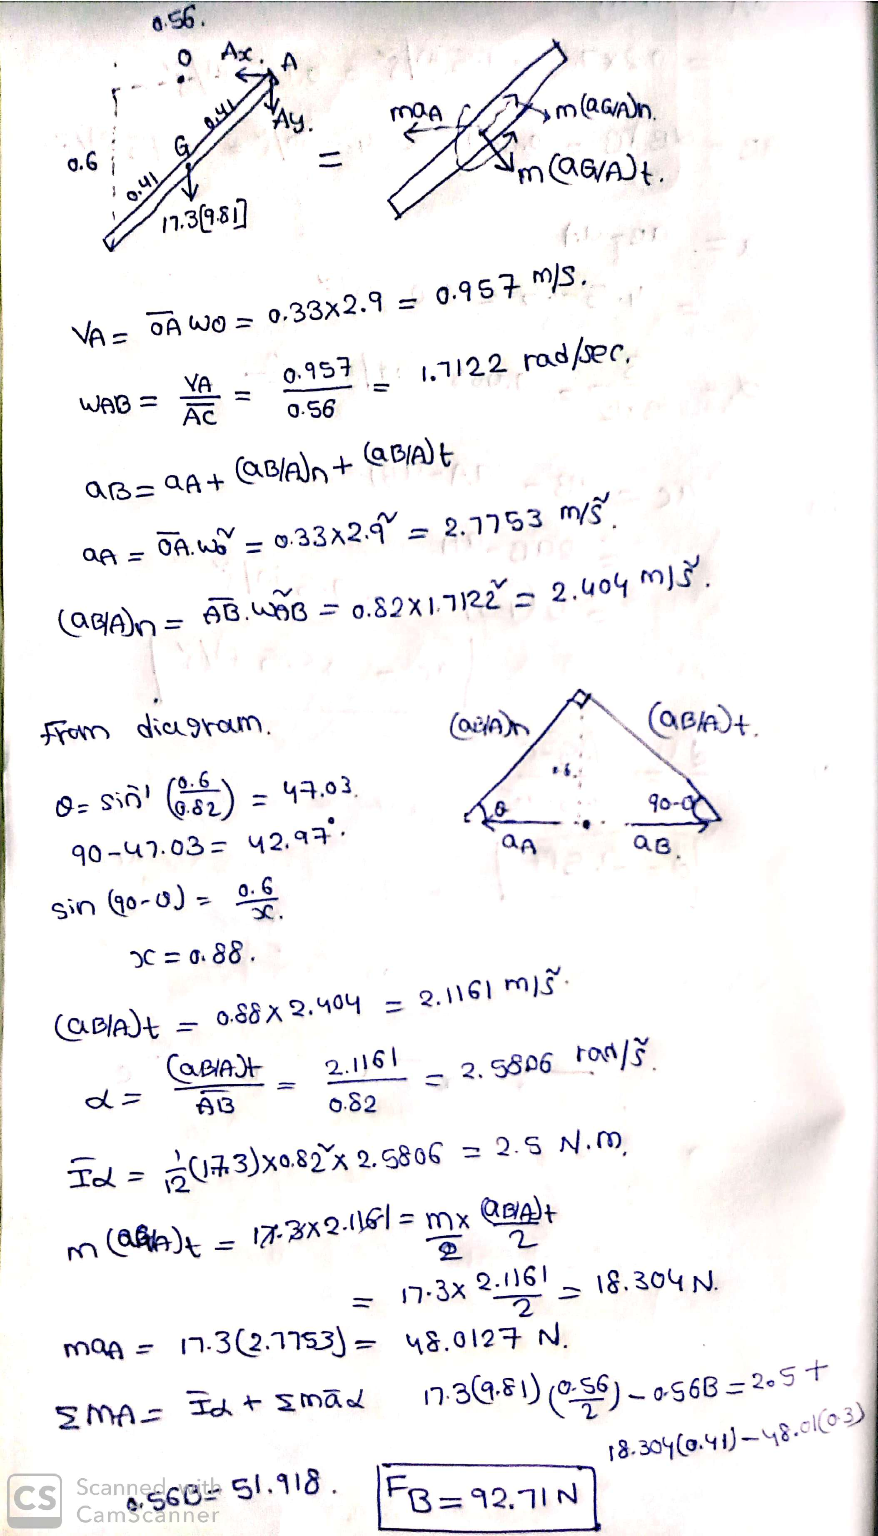 0.56.
O Ax. A
Ay.
0.41
G
0.6
0.41
17.3[9.81]
=
maA
m(aG/A)n.
m(aG/A)t.
VA = OA WO = 0.33x2.9 = 0.957 m/s.
WAB = VA/AC = 0.957/0.56 = 1.7122 rad/sec.
aB = aA + (aB/A)n + (aB/A)t
aA = OA.wo² = 0.33x2.9² = 2.7753 m/s².
(aB/A)n = AB.WAB² = 0.82x1.7122² = 2.404 m/s².
From diagram.
(aB/A)n (aB/A)t.
θ = sin⁻¹ (0.6/0.82) = 47.03.
θ 90-θ
90-47.03 = 42.97°.
aA aB.
sin (90-θ) = 0.6/x.
x = 0.88.
(aB/A)t = 0.88 x 2.404 = 2.1161 m/s².
α = (aB/A)t/AB = 2.1161/0.82 = 2.5806 rad/s².
Iα = 1/12 (17.3)x0.82²x 2.5806 = 2.5 N.m.
m (aG/A)t = 17.3x2.1161 = mx/2 (aB/A)t/2
= 17.3x 2.1161/2 = 18.304 N.
maA = 17.3(2.7753) = 48.0127 N.
ΣMA = Iα + Σmad 17.3(9.81)(0.56/2) - 0.56B = 2.5 +
18.304(0.41) - 48.01(0.3)
0.56B = 51.918. FB = 92.71 N
CS Scanned with
CamScanner